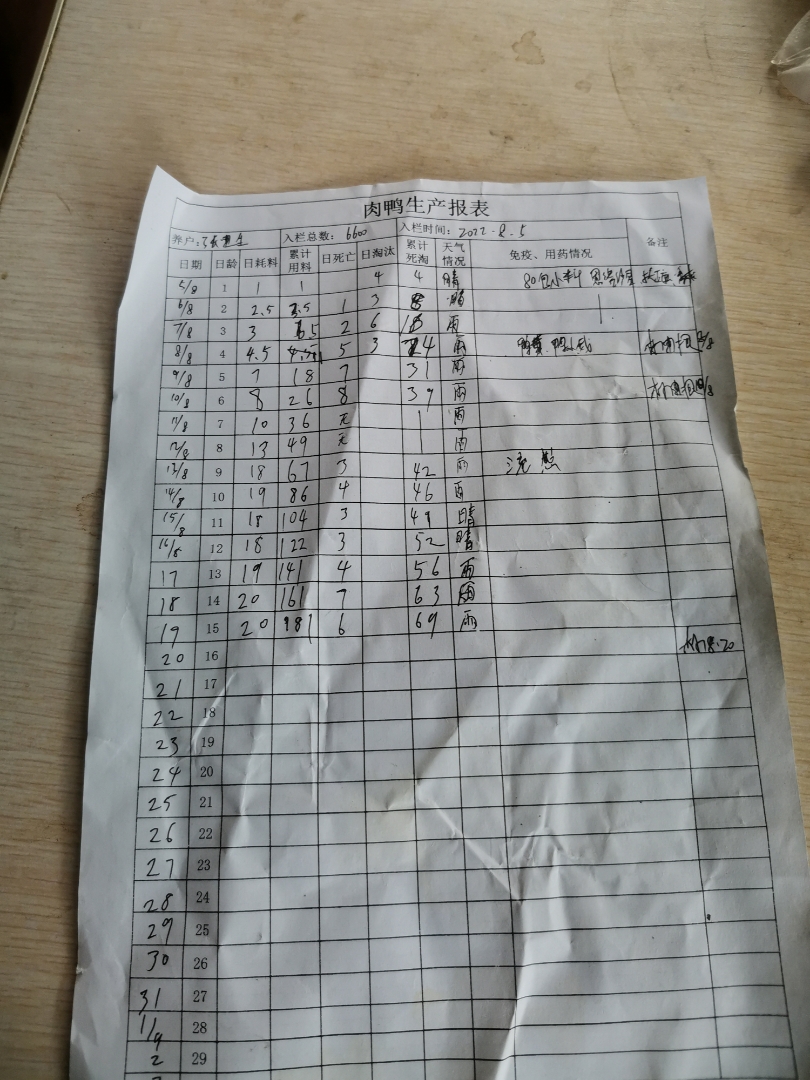 肉鸭生产报表
养户: 入栏总数: 6600 入栏时间: 2022.8.5
日期 日龄 日耗料 累计用料 日死亡 日淘汰 累计死淘 天气情况 免疫、用药情况 备注
5/8 1 1 1 4 4 晴 80包小料
6/8 2 2.5 3.5 1 3 8 晴
7/8 3 3 6.5 2 6 16 雨
8/8 4 4.5 5 3 24 雨
9/8 5 7 18 7 31 雨
10/8 6 8 26 8 39 雨
11/8 7 10 36 无 雨
12/8 8 13 49 无 雨
13/8 9 18 67 3 42 雨
14/8 10 19 86 4 46 雨
15/8 11 18 104 3 49 晴
16/8 12 18 122 3 52 晴
17 13 19 141 4 56 雨
18 14 20 161 7 63 雨
19 15 20 181 6 69 雨
20 16 8.20
21 17
22 18
23 19
24 20
25 21
26 22
27 23
28 24
29 25
30 26
31 27
1/9 28
2 29